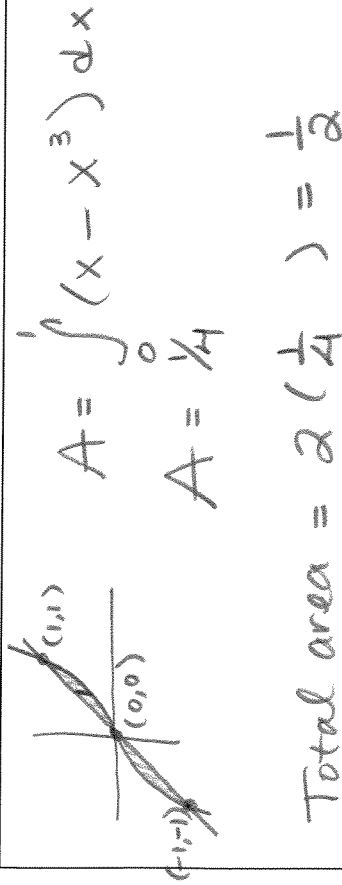 (1,1)
(0,0)
(-1,-1)
A = ∫₀¹ (x - x³) dx
A = 1/4
Total area = 2(1/4) = 1/2